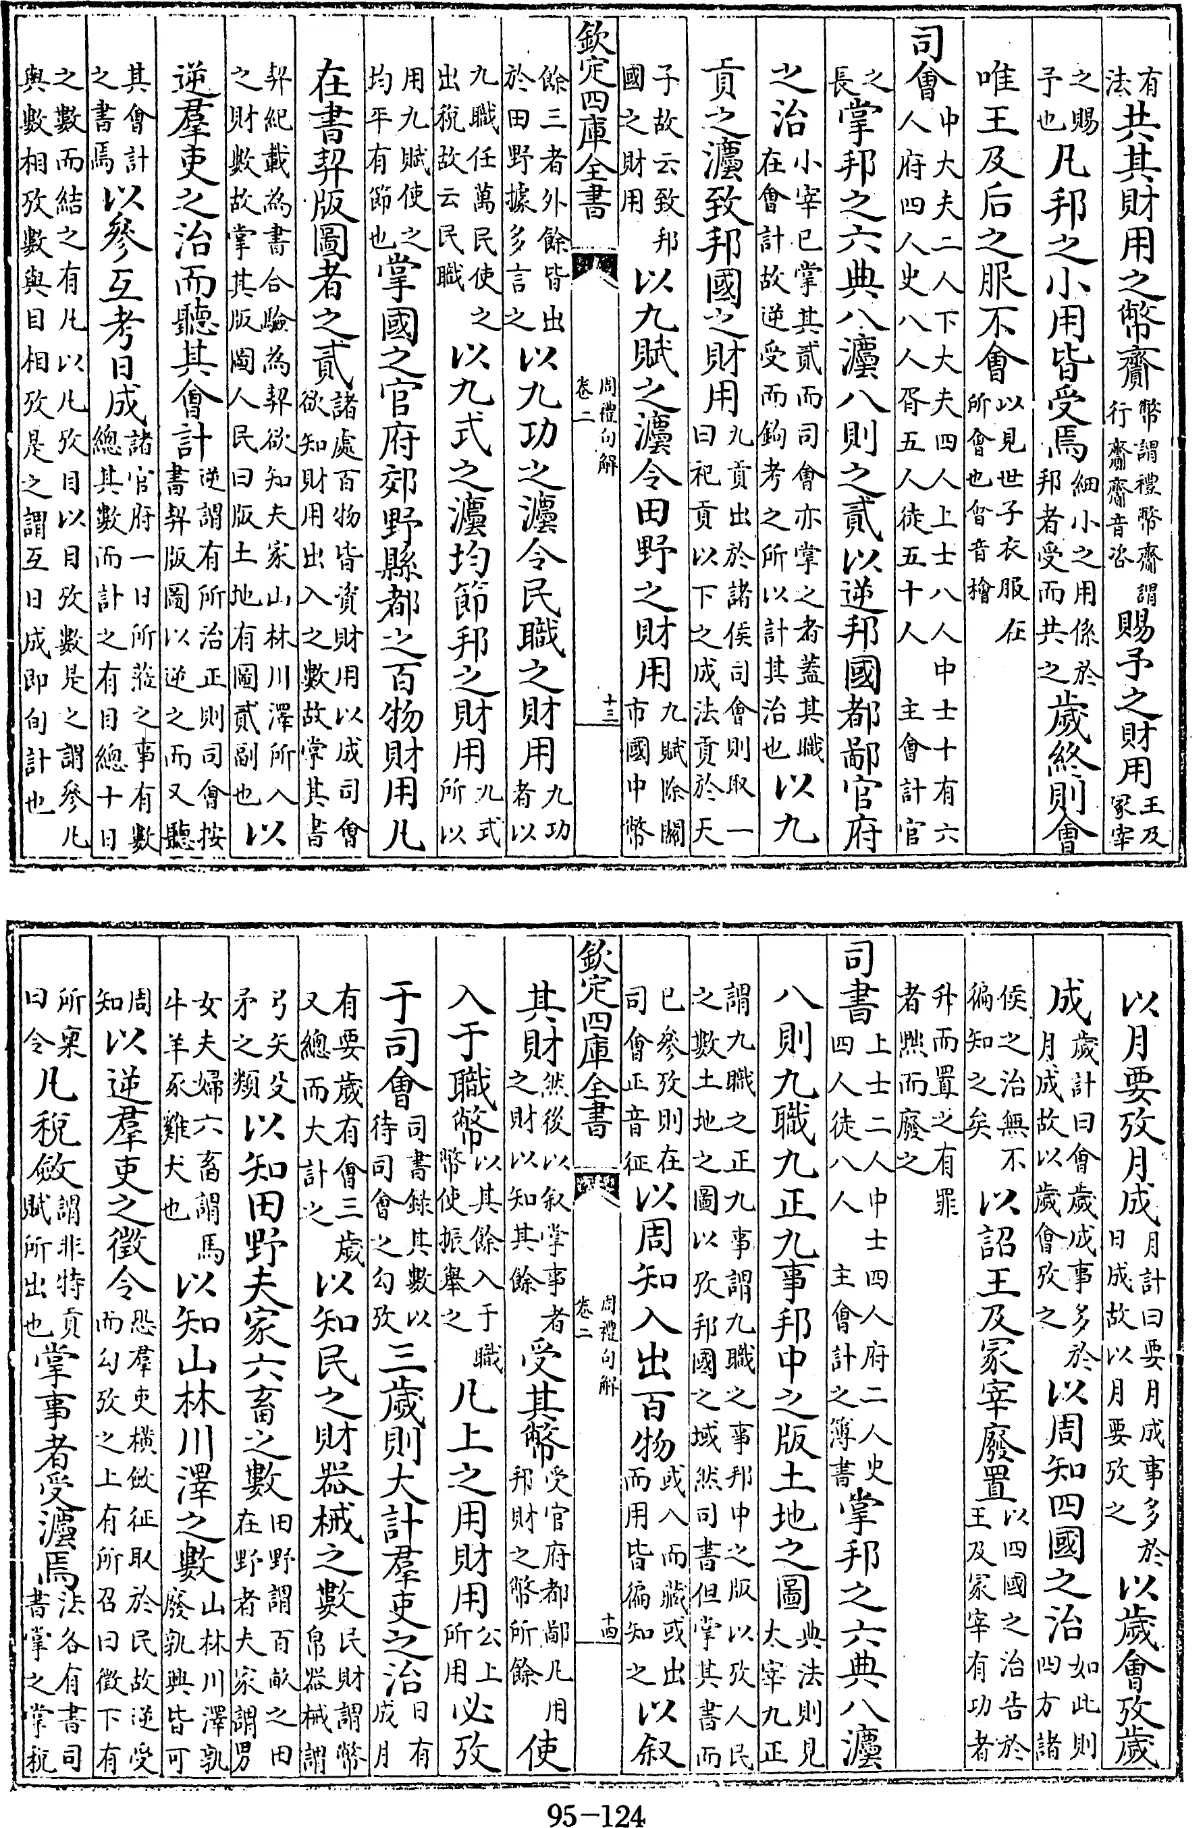 有法共其財用之幣齎幣謂禮幣齎謂行齎齎音咨賜予之財用王及冢宰
之賜予也凡邦之小用皆受焉細小之用係於邦者受而共之歲終則會
唯王及后之服不會以見世子衣服在所會也會音檜
司會中大夫二人下大夫四人上士八人中士十有六人府四人史八人胥五人徒五十人主會計官
之長掌邦之六典八灋八則之貳以逆邦國都鄙官府
之治小宰已掌其貳而司會亦掌之者蓋其職在會計故逆受而鉤考之所以計其治也以九
貢之灋致邦國之財用九貢出於諸侯司會則取一曰祀貢以下之成法貢於天
子故云致邦國之財用以九賦之灋令田野之財用九賦除關市國中幣
欽定四庫全書
周禮句解
卷二
十三
餘三者外餘皆出於田野據多言之以九功之灋令民職之財用九功者以
九職任萬民使之出稅故云民職以九式之灋均節邦之財用九式所以
用九賦使之均平有節也掌國之官府郊野縣都之百物財用凡
在書契版圖者之貳諸處百物皆資財用以成司會欲知財用出入之數故掌其書
契紀載為書合驗為契欲知夫家山林川澤所入之財數故掌其版圖人民曰版土地有圖貳副也以
逆羣吏之治而聽其會計逆謂有所治正則司會按書契版圖以逆之而又聽
其會計之書焉以參互考日成諸官府一日所涖之事有數總其數而計之有目總十日
之數而結之有凡以凡攷目以目攷數是之謂參凡與數相攷數與目相攷是之謂互日成即旬計也
以月要攷月成月計曰要月成事多於日成故以月要攷之以歲會攷歲
成歲計曰會歲成事多於月成故以歲會攷之以周知四國之治如此則四方諸
侯之治無不徧知之矣以詔王及冢宰廢置以四國之治告於王及冢宰有功者
升而置之有罪者黜而廢之
司書上士二人中士四人府二人史四人徒八人主會計之簿書掌邦之六典八灋
八則九職九正九事邦中之版土地之圖典法則見太宰九正
謂九職之正九事謂九職之事邦中之版以攷人民之數土地之圖以攷邦國之域然司書但掌其書而
已參攷則在司會正音征以周知入出百物或入而藏或出而用皆徧知之以叙
欽定四庫全書
周禮句解
卷二
十四
其財然後以叙掌事者之財以知其餘受其幣受官府都鄙凡用邦財之幣所餘使
入于職幣以其餘入于職幣使振舉之凡上之用財用公上所用必攷
于司會司書録其數以待司會之勾攷三歲則大計羣吏之治日有成月
有要歲有會三歲又總而大計之以知民之財器械之數民財謂幣帛器械謂
弓矢殳矛之類以知田野夫家六畜之數田野謂百畝之田在野者夫家謂男
女夫婦六畜謂馬牛羊豕雞犬也以知山林川澤之數山林川澤孰廢孰興皆可
周知以逆羣吏之徵令恐羣吏橫斂征取於民故逆受而勾攷之上有所召曰徵下有
所稟曰令凡稅斂謂非特貢賦所出也掌事者受灋焉法各有書司書掌之掌稅
95-124